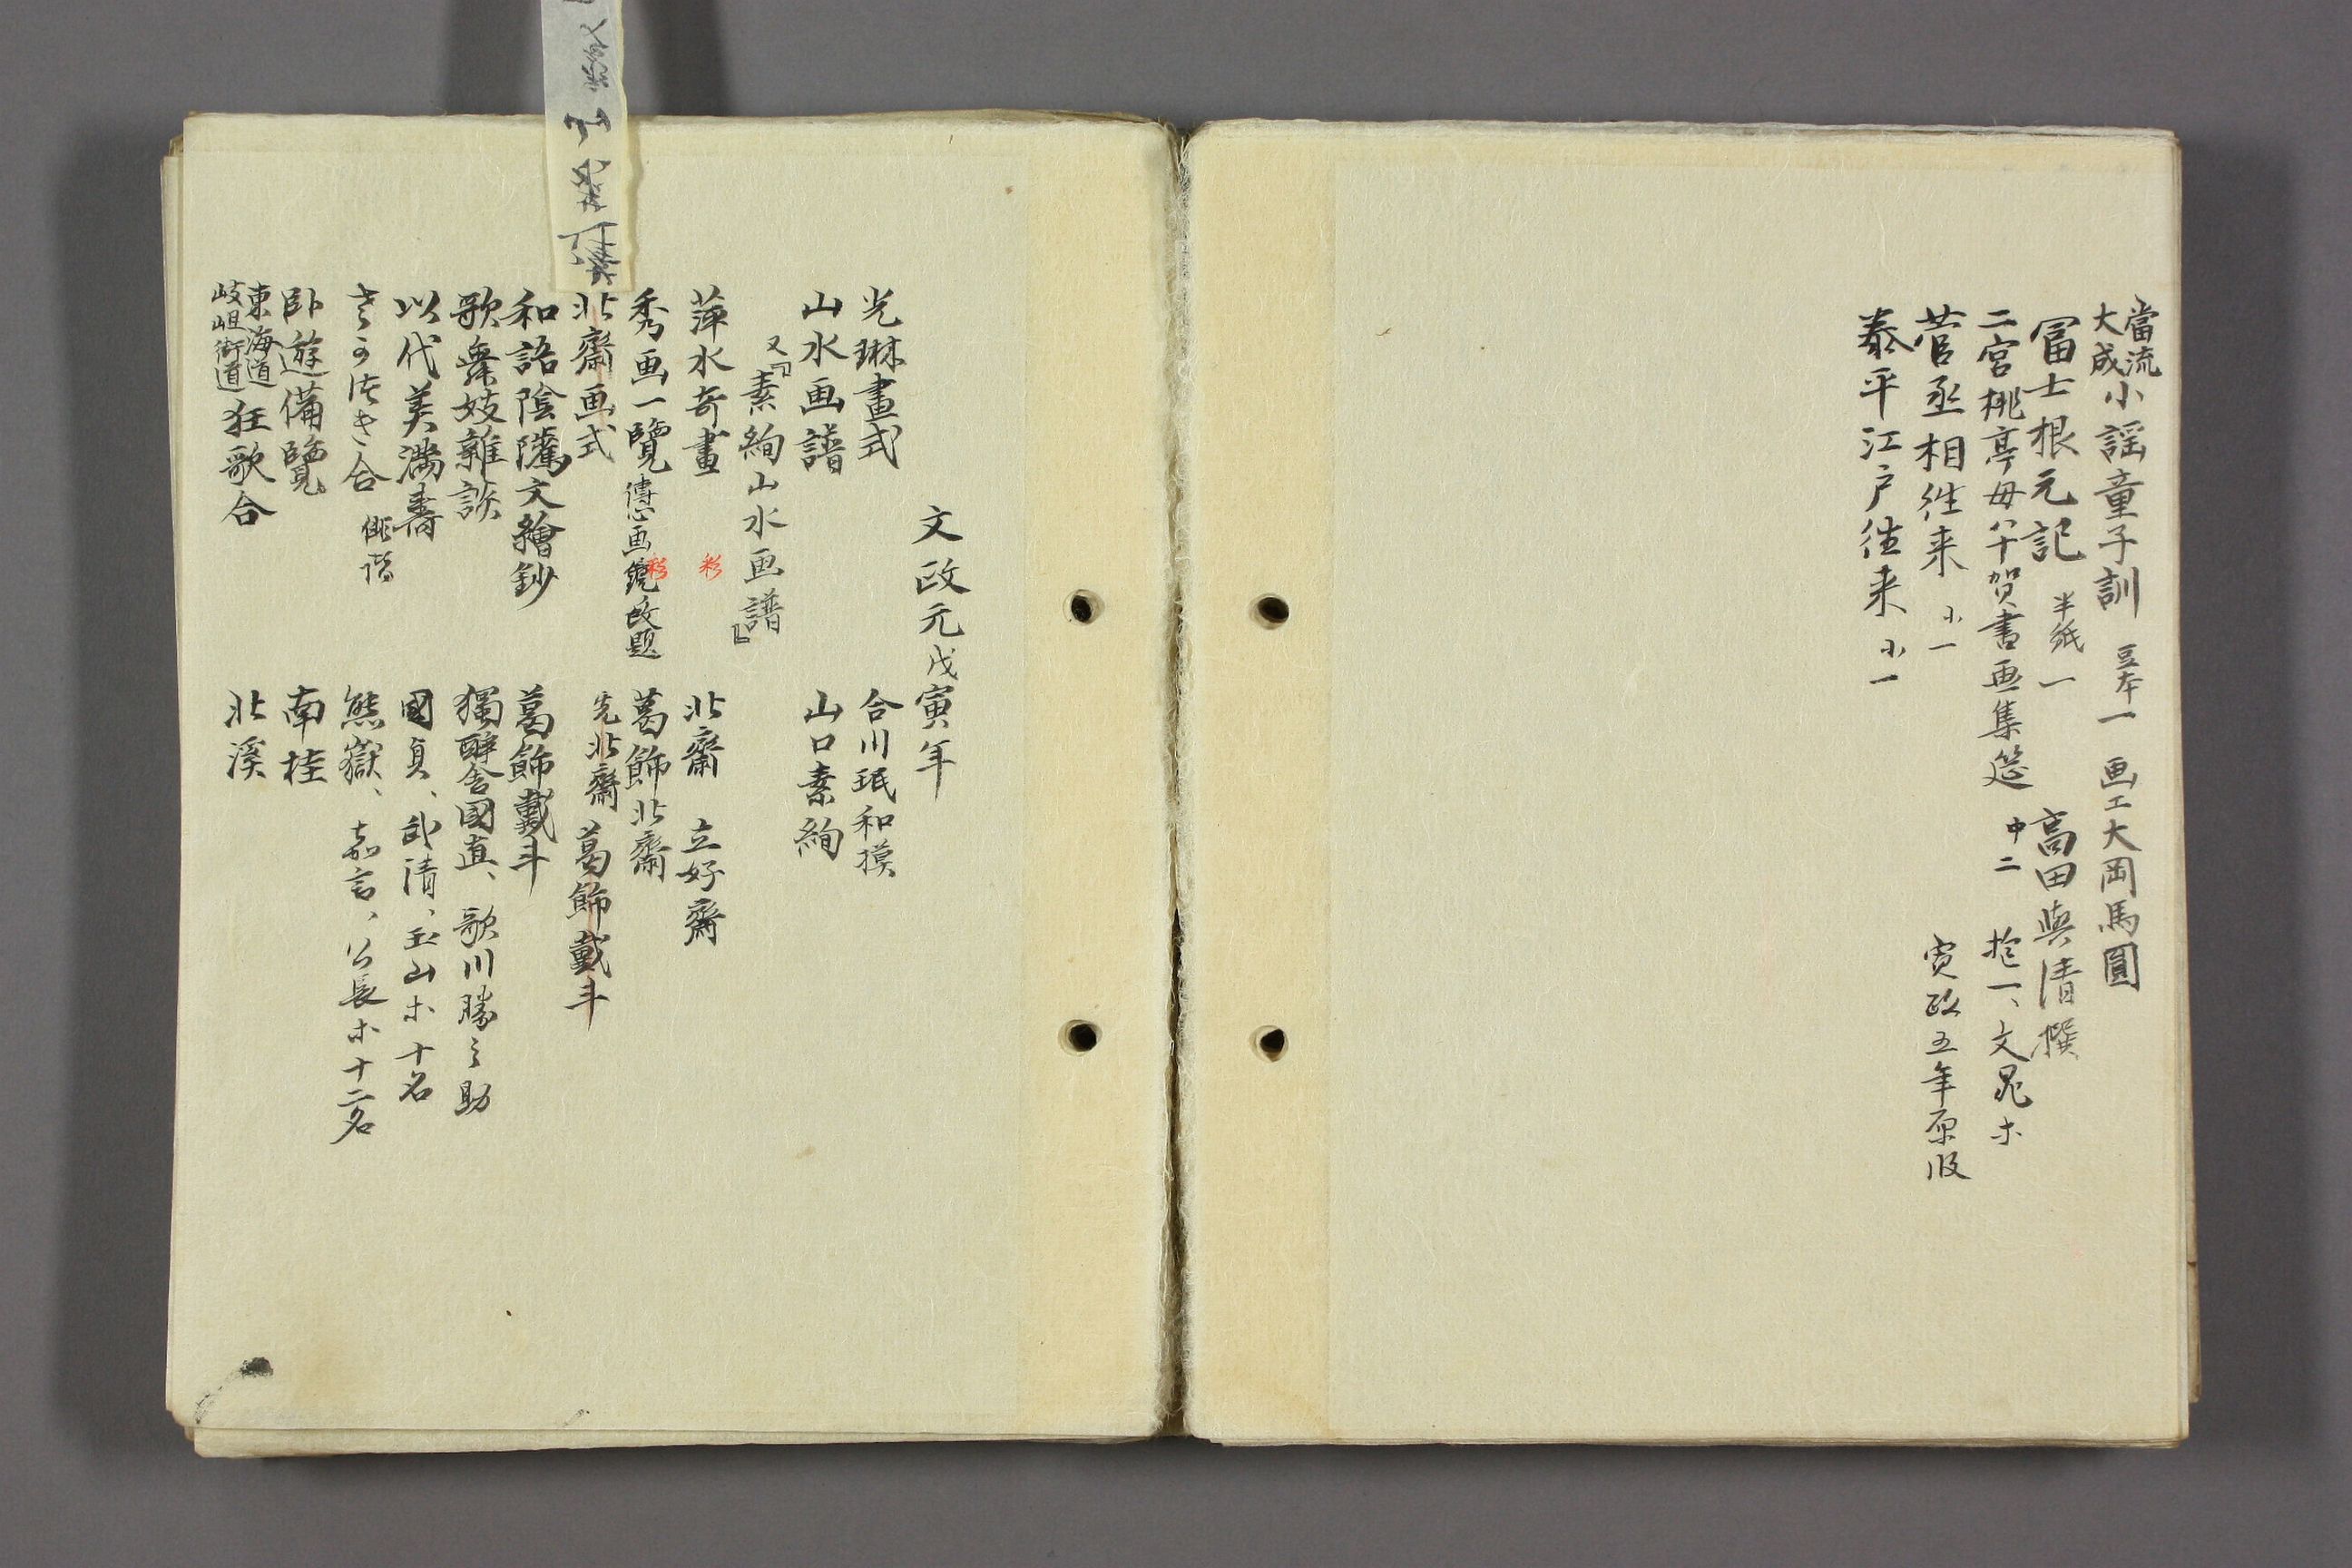 當流
大成 小謡童子訓 豆本一 画工大岡馬圓
冨士根元記 半紙一 高田與清撰
二宮桃亭母八十賀書画集筵 中二 抱一、文晁ホ
菅丞相往来 小一 寛政五年原版
泰平江戸往来 小一
文政元戊寅年
光琳畫式 合川珉和摸
山水画譜 山口素絢
又『素絢山水画譜』
萍水奇畫 彩 北齋 立好齋
秀画一覽 傳心画鏡改題 彩 葛飾北齋
北齋画式 先北齋葛飾戴斗
和語陰隲文繪鈔 葛飾戴斗
歌舞妓雜談 獨醉舎國直、歌川勝之助
以代美満壽 國貞、武清、玉山ホ十名
合 俳諧 熊嶽、嘉言、公長ホ十二名
臥遊備覽 南桂
東海道
岐岨街道 狂歌合 北溪